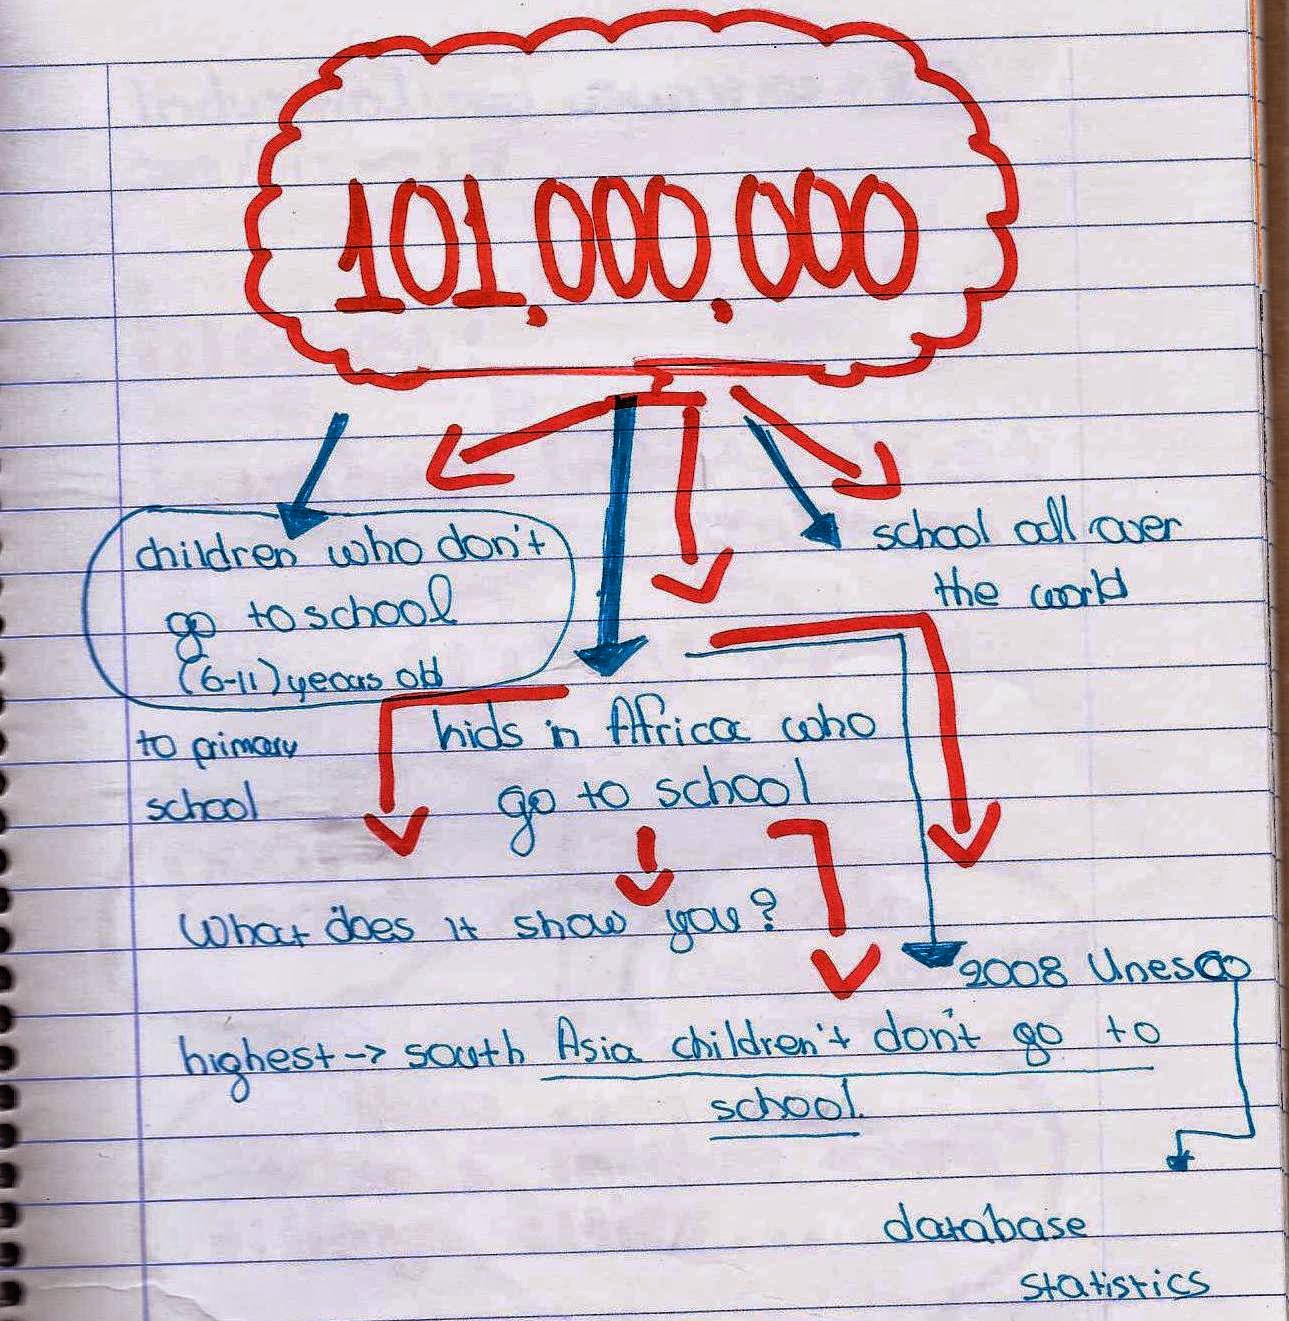 101,000,000
children who don't
go to school
(6-11) years old
to primary
school
school all over
the world
kids in Africa who
go to school
What does it show you?
2008 Unesco
highest -> south Asia children't don't go to
school.
database
statistics